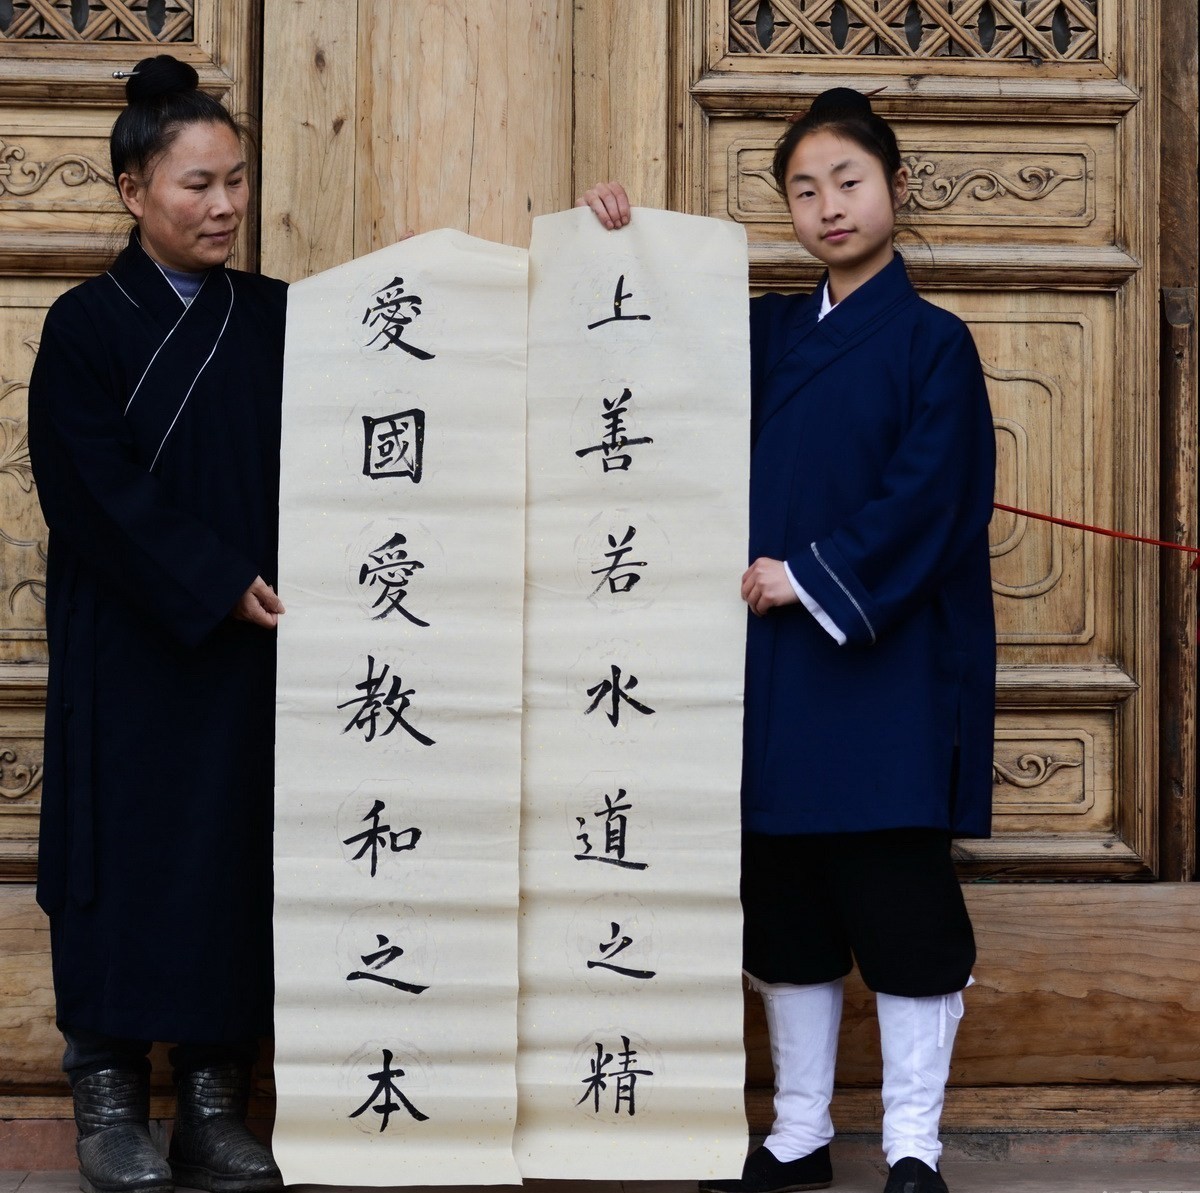 上善若水道之精
愛國愛教和之本